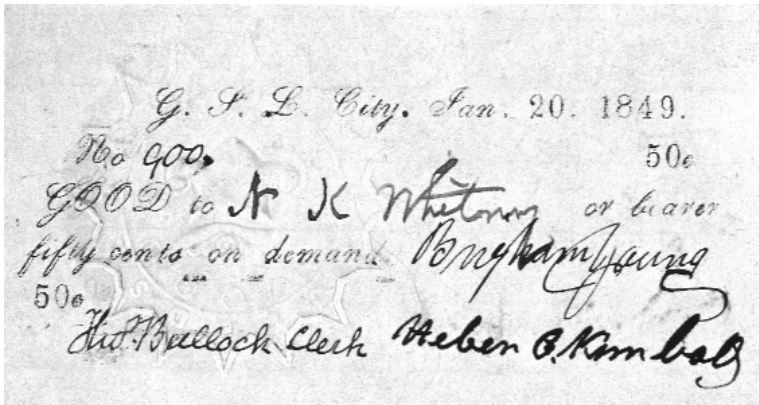 G. S. L. City. Jan. 20. 1849.
No 900. 50c
GOOD to N K Whitney or bearer
fifty cents on demand. Brigham Young
50c
Tho.s Bullock Clerk Heber C. Kimball